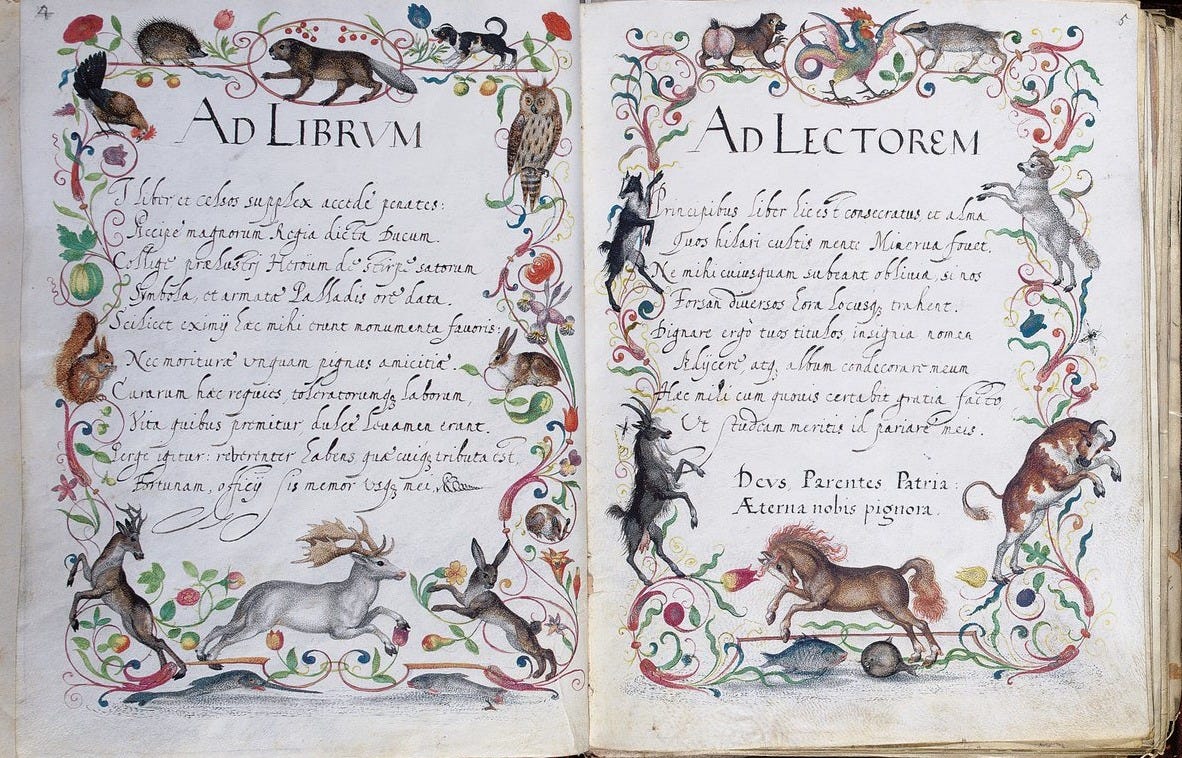 4
AD LIBRVM
I liber et celsos supplex accede penates:
Accipe magnorum Regia dicta Ducum.
Collige prælustri Heroum de stirpe satorum
Symbola, et armatæ Palladis ore data.
Scilicet eximij hæc mihi erunt monumenta fauoris:
Nec morituræ vnquam pignus amicitiæ.
Curarum hæc requies, toleratorumq; laborum,
Vita quibus premitur dulce leuamen erunt.
Perge igitur: reuerenter habens quæ cuiq; tributa est,
Fortunam, officij sis memor vsq; mei.
5
AD LECTOREM
Principibus liber hic est consecratus, et alma
Quos hilari cultis mente Minerua fouet.
Ne mihi cuiusquam subeant obliuia, si nos
Forsan diuersos hora locusq; trahent.
Dignare ergò tuos titulos, insignia nomen
Adijcere atq; album condecorare meum
Hac mihi cum quouis certabit gratia facto,
Ut studeam meritis id pariare meis.
DEVS PARENTES PATRIA:
ÆTERNA nobis pignora.